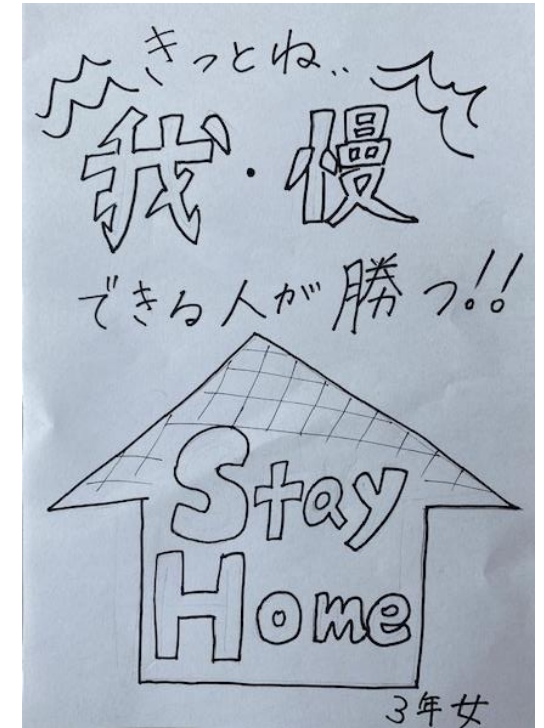 きっとね..
我・慢
できる人が勝つ!!
Stay
Home
3年女